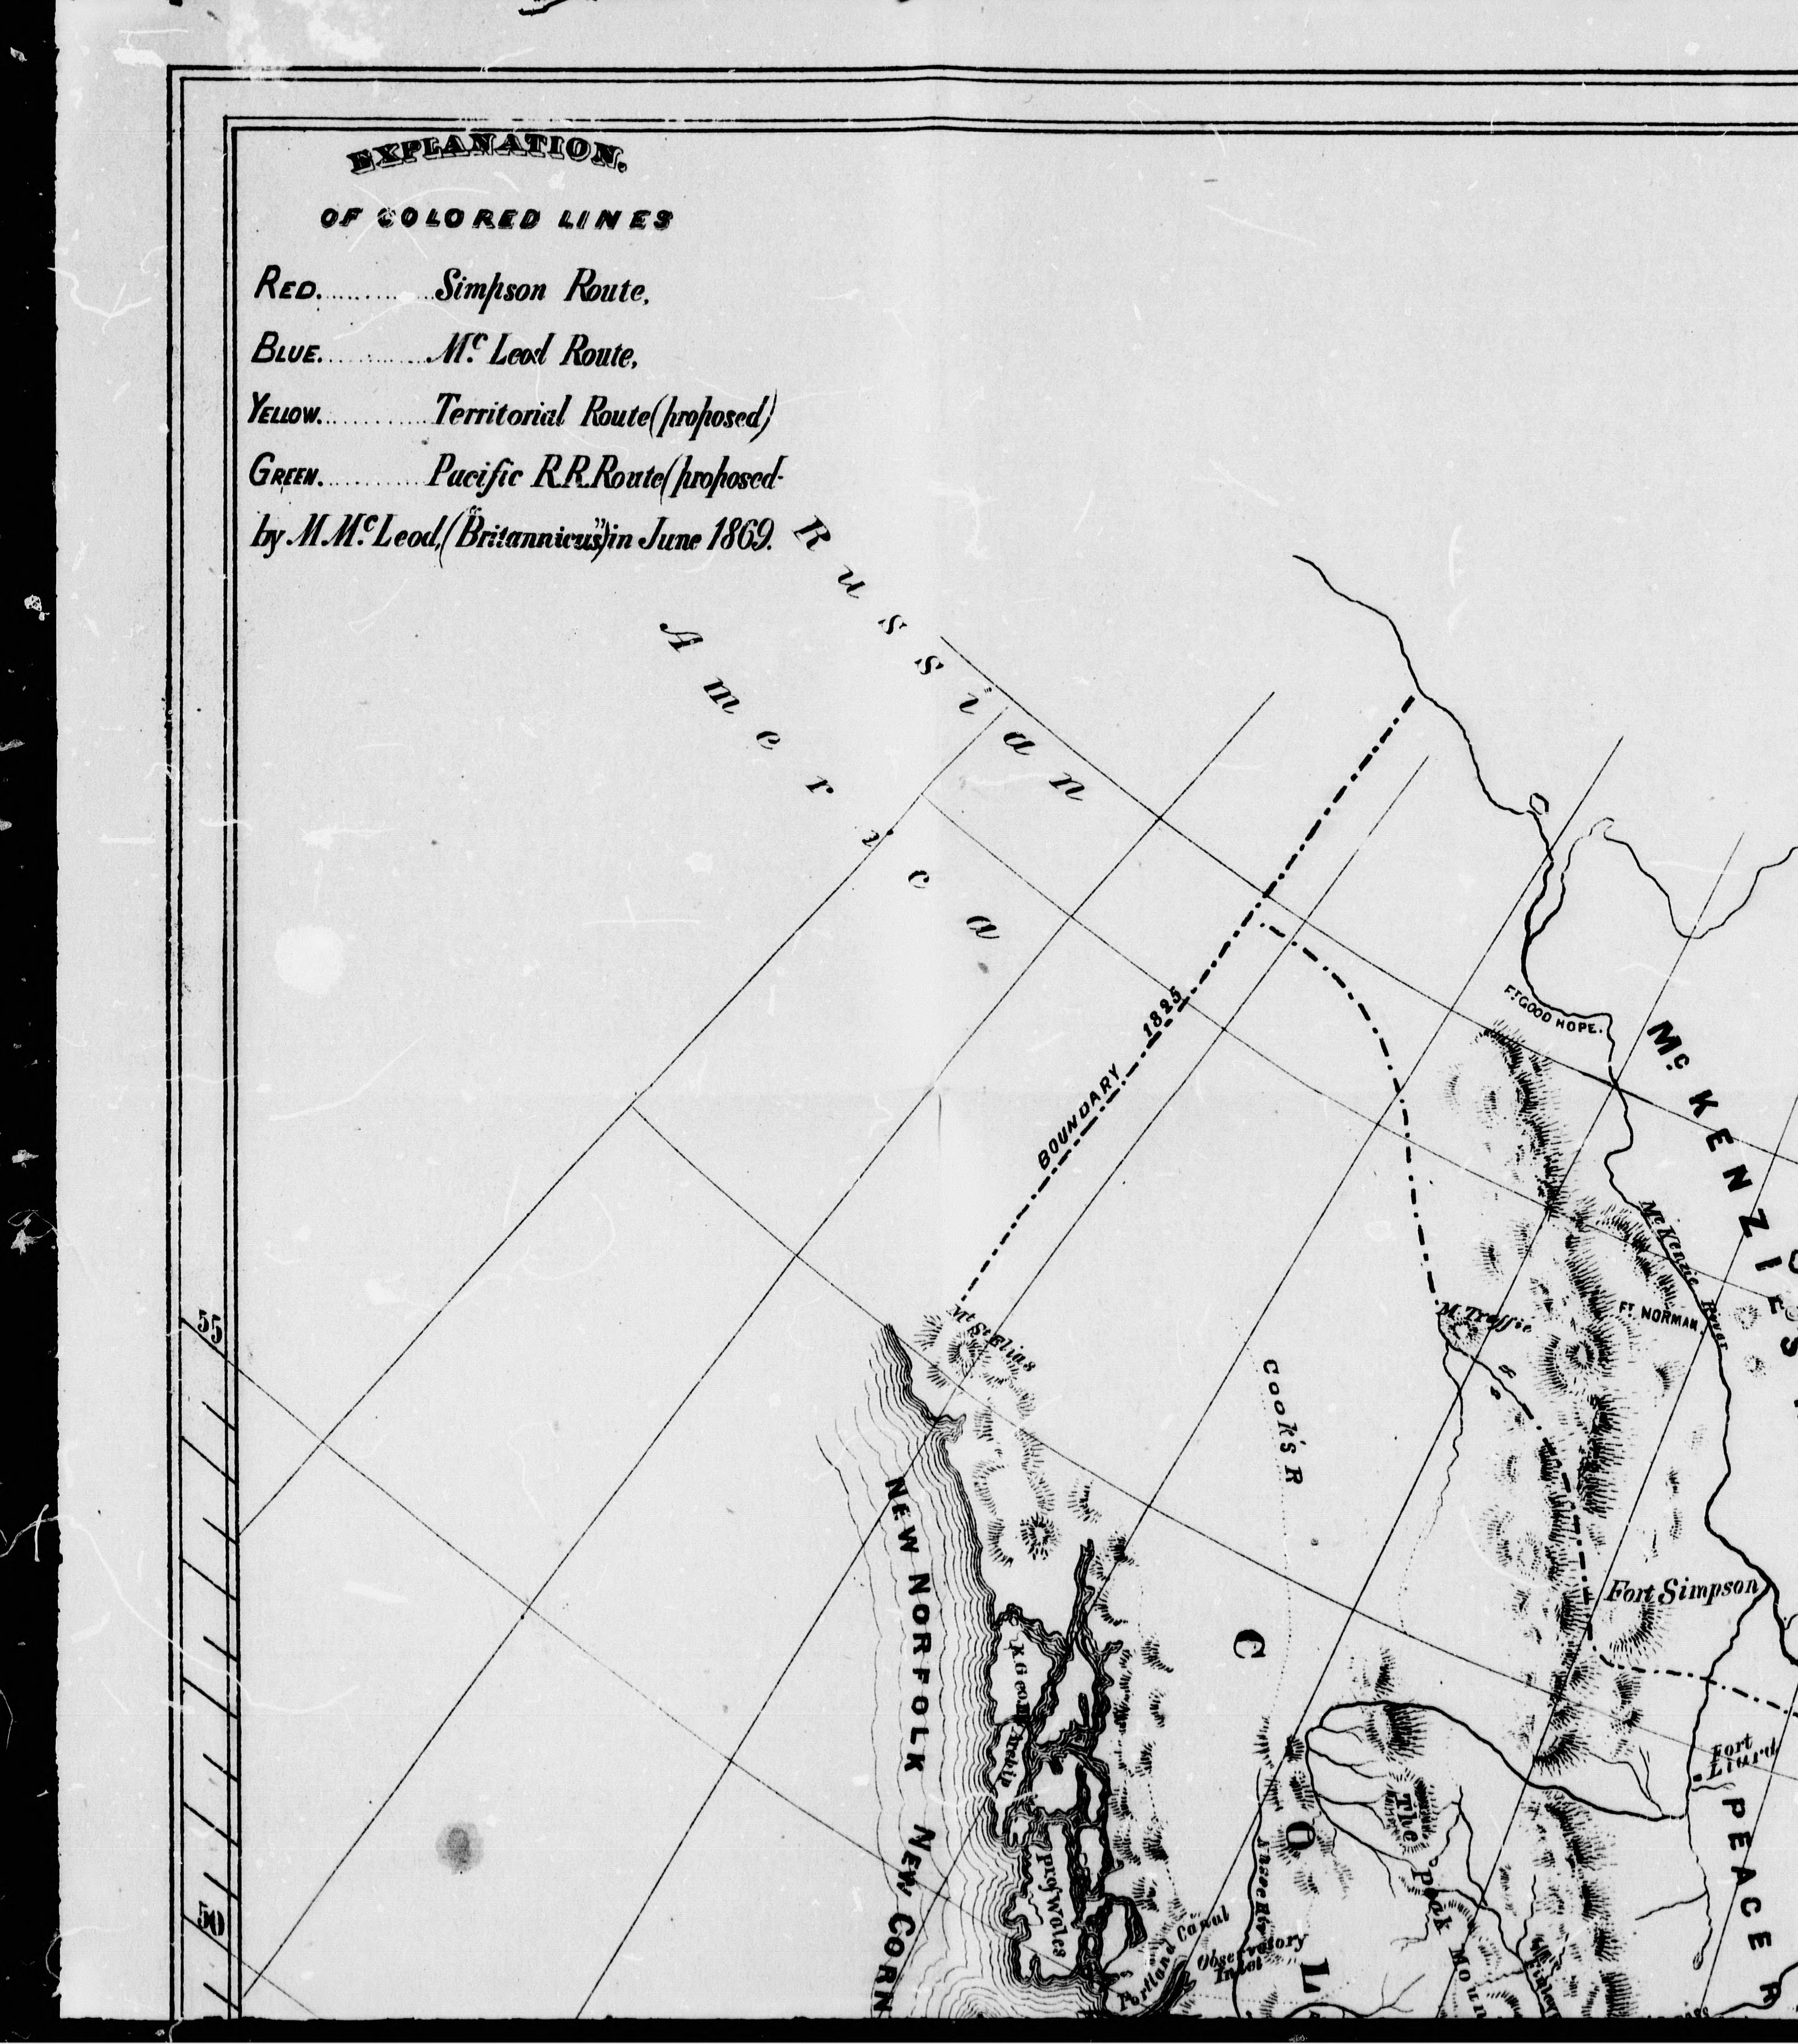 EXPLANATION.
OF COLORED LINES
RED. Simpson Route,
BLUE. Mc. Leod Route,
YELLOW. Territorial Route (proposed)
GREEN. Pacific R.R. Route (proposed-
by M. Mc. Leod, ("Britannicus") in June 1869.
Russian
America
BOUNDARY 1825
FT. GOOD HOPE.
Mc. KENZIE'S
Mc. Kenzie River
FT. NORMAN.
M. Traffic
Mt. St. Elias
Cook's R
55
NEW NORFOLK
Fort Simpson
K. George Archip
Fort Liard
The Peak Moun
COL
PEACE R
P. of Wales
50
NEW CORN
Portland Canal
Observatory
Inlet